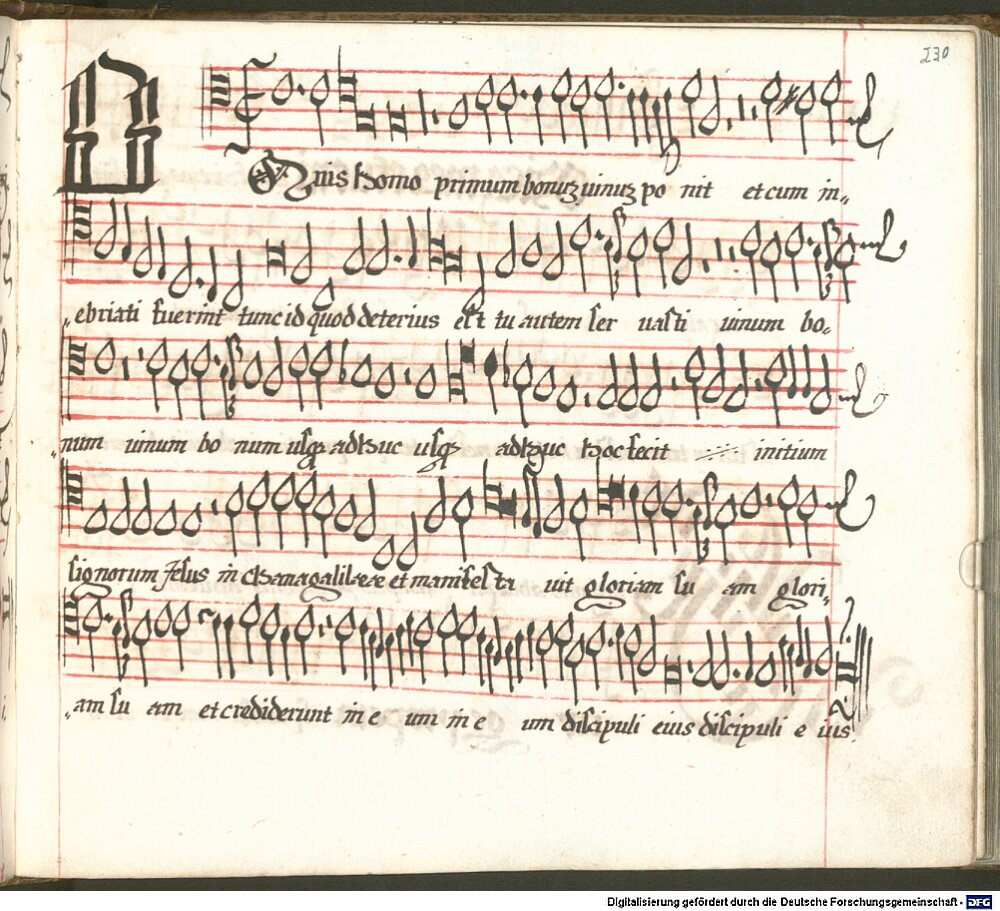 230
Omnis homo primum bonum uinum po nit et cum in-
ebriati fuerint tunc id quod deterius est tu autem ser uasti uinum bo-
num uinum bo num usq adhuc usq adhuc hoc fecit initium
signorum Jesus in Chanagalilææ et manifesta uit gloriam su am glori-
am su am et crediderunt in e um in e um discipuli eius discipuli e ius
Digitalisierung gefördert durch die Deutsche Forschungsgemeinschaft - DFG